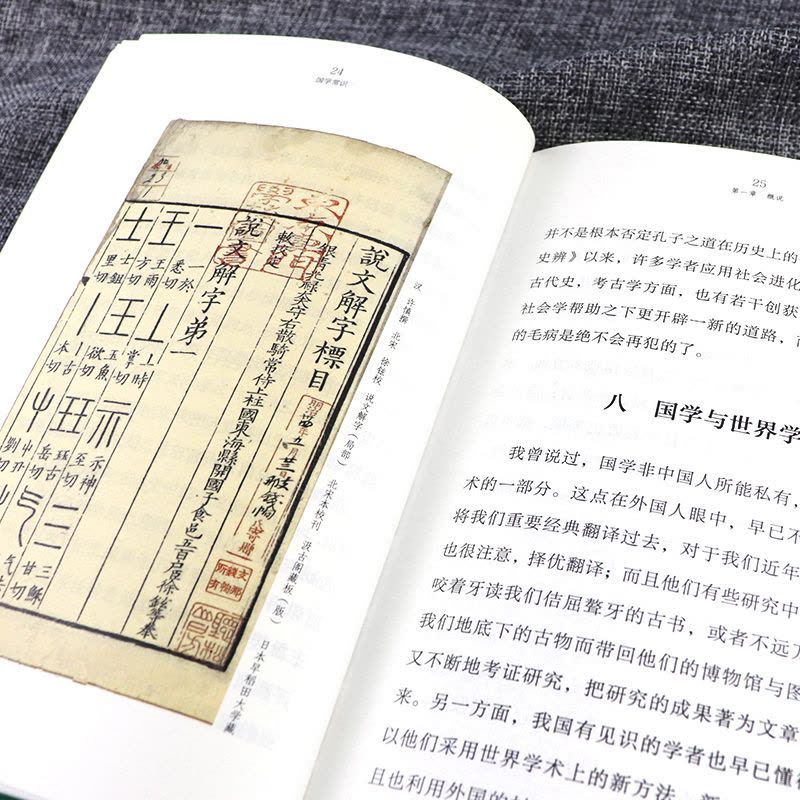 24
国学常识
說文解字標目
銀青光祿大夫守右散騎常侍上柱國東海縣開國子食邑五百戶臣徐鉉等奉
敕校定
說文解字弟一
一於悉切
丄時掌切
示神至切
三穌甘切
王雨方切
玉魚欲切
玨古岳切
气
士鉏里切
丨古本切
屮丑
汉 许慎撰 北宋 徐铉校 说文解字（局部） 北宋本校刊 汲古阁藏板（版） 日本早稻田大学藏
25
第一章 概说
并不是根本否定孔子之道在历史上的
史辨》以来，许多学者应用社会进化
古代史，考古学方面，也有若干创获
社会学帮助之下更开辟一新的道路，
的毛病是绝不会再犯的了。
八 国学与世界学
我曾说过，国学非中国人所能私有，
术的一部分。这点在外国人眼中，早已不
将我们重要经典翻译过去，对于我们近年
也很注意，择优翻译；而且他们有些研究中
咬着牙读我们佶屈聱牙的古书，或者不远万
我们地底下的古物而带回他们的博物馆与图
又不断地考证研究，把研究的成果著为文章
来。另一方面，我国有见识的学者也早已懂得
以他们采用世界学术上的新方法，新
且也利用外国的材